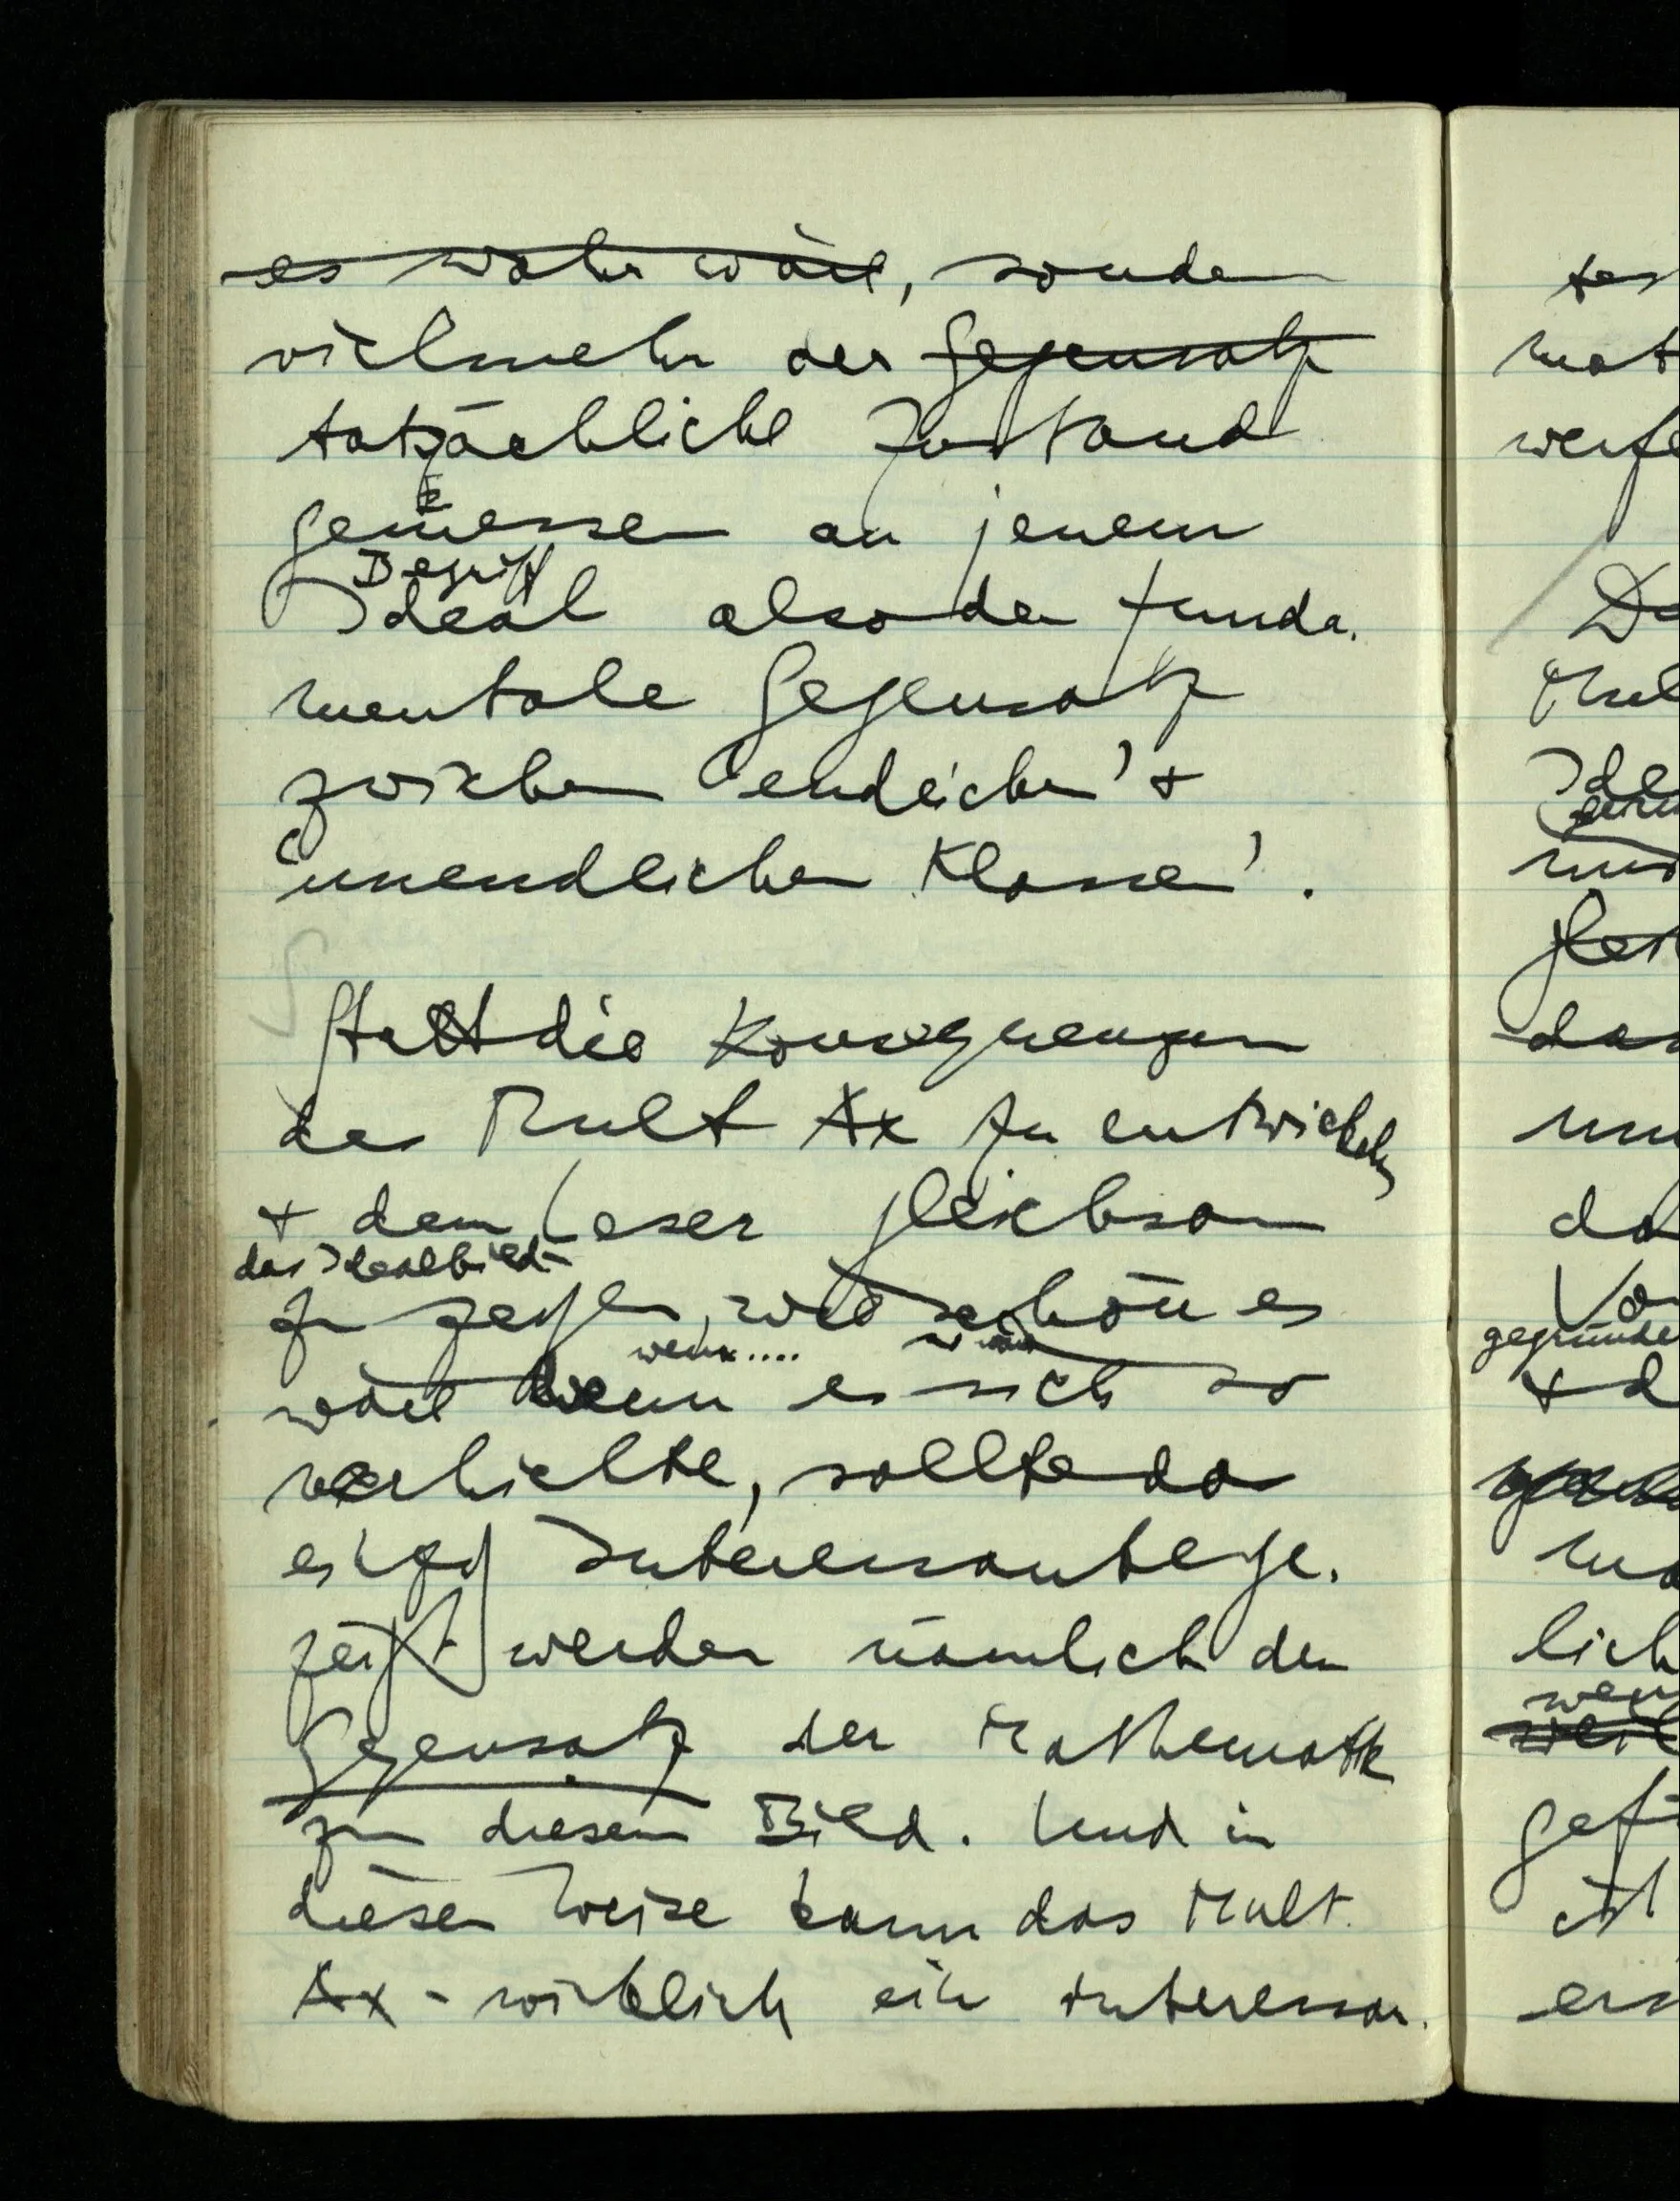 es wahr wäre, sondern
vielmehr der Gegensatz
tatsächliche Zustand
gemessen an jenem
Begriff
Ideal also der funda-
mentale Gegensatz
zwischen 'endlichen' +
'unendlichen Klassen'.
Statt die Konsequenzen
des Mult Ax zu entwickeln
+ dem Leser gleichsam
das Idealbild
zu zeigen, wie schön es
wenn.... wär
wäre wenn es sich so
verhielte, sollte das
Interessante ge-
zeigt werden nämlich der
Gegensatz der Mathematik
zu diesem Bild. Und in
dieser Weise kann das Mult.
Ax - wirklich ein interessan-
tes
mat
werfe
De
Mul
Ide
nur
das
un
da
Vo
gegründe
+ d
ma
lich
wen
weil
gef
ist
ers